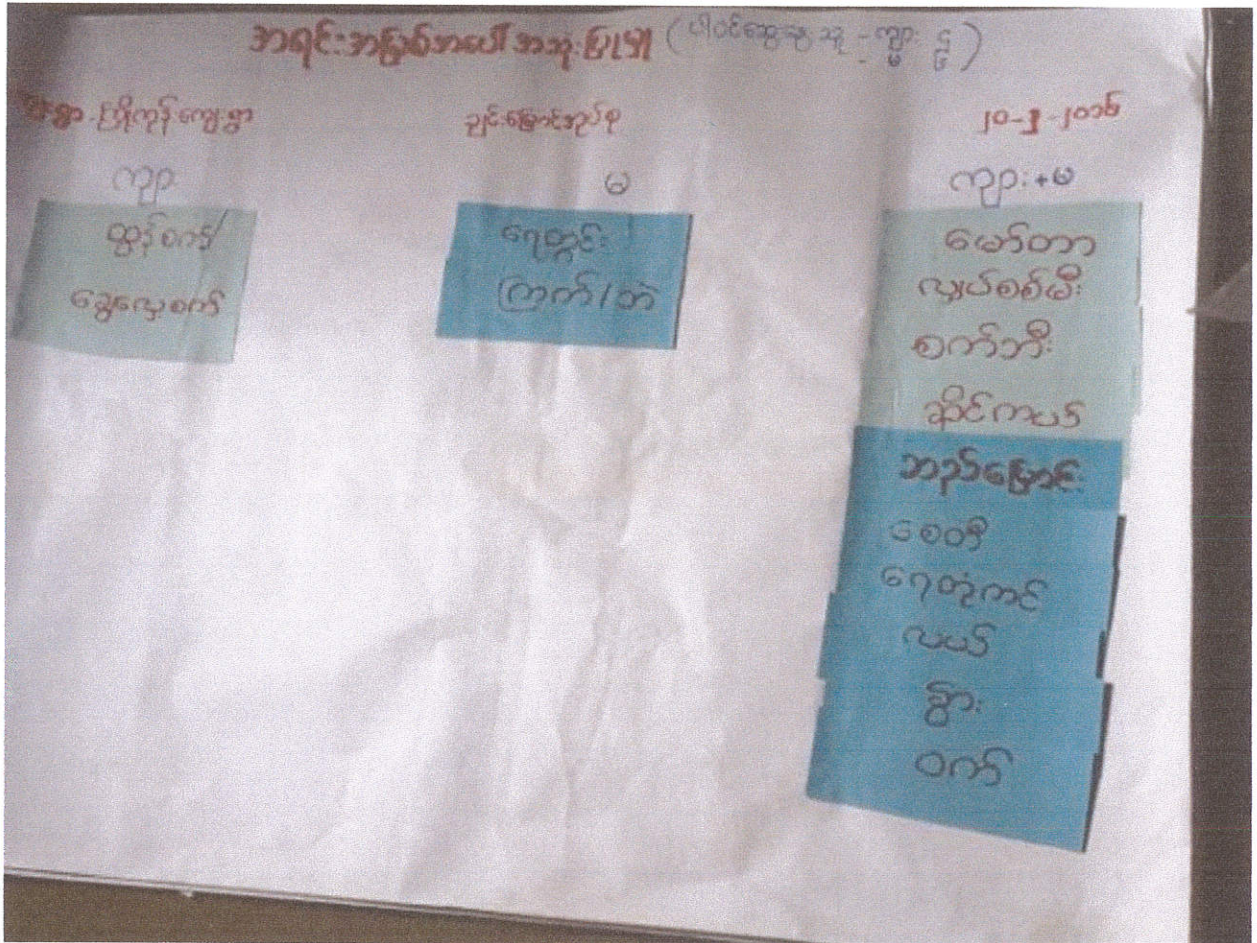 အရင်းအမြစ်အပေါ် အသုံးပြုမှု (ပါဝင်ဆွေးနွေးသူ - ကျား
ကြိုကုန်းကျေးရွာ
ချင်းမြောင်အုပ်စု
၂၀-၂-၂၀၁၆
ကျား
မ
ကျား+မ
ထွန်စက်/
ခြွေလှေ့စက်
ရေတွင်း
ကြက်/ဘဲ
မော်တာ
လျှပ်စစ်မီး
စက်ဘီး
ဆိုင်ကယ်
ဘည်မြောင်း
စေတီ
ရေတုံကင်
လယ်
နွား
ဝက်